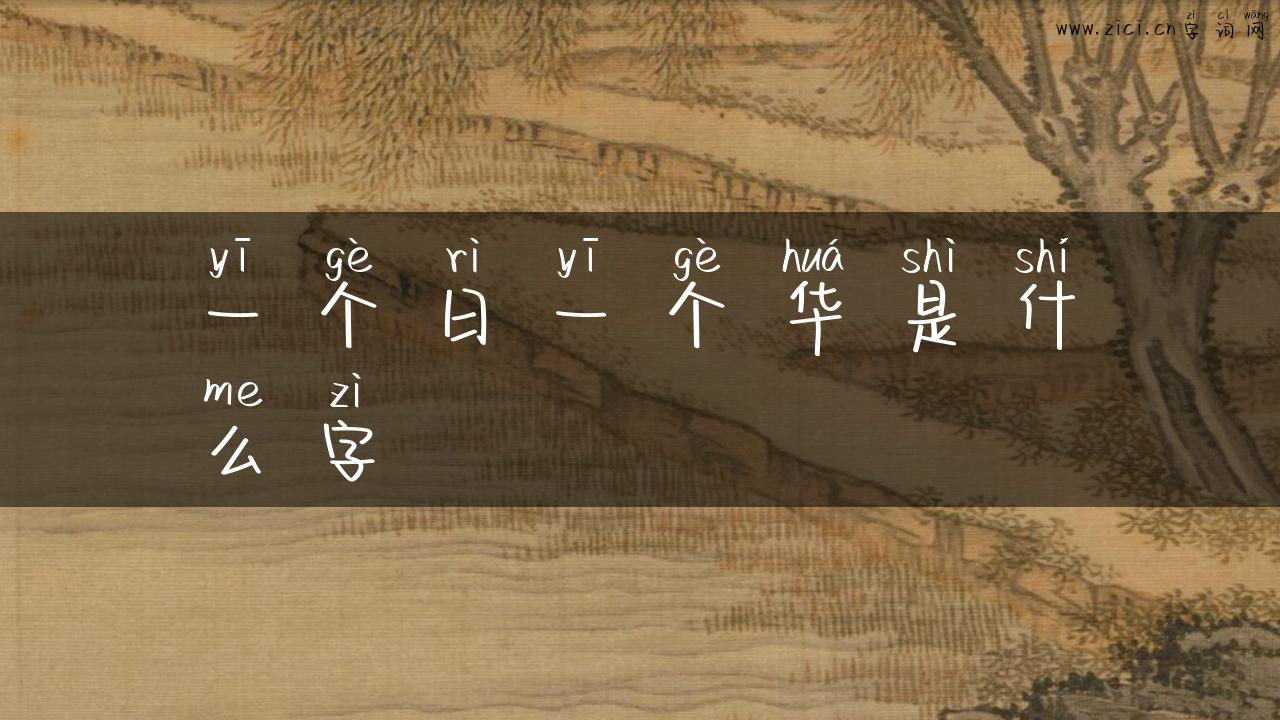 zì cí wǎng
www.zici.cn 字 词 网
yī gè rì yī gè huá shì shí
一 个 日 一 个 华 是 什
me zì
么 字